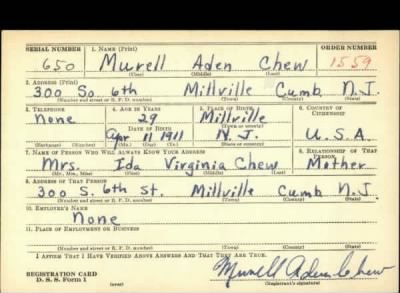 SERIAL NUMBER 1. NAME (Print) ORDER NUMBER
650 Murell Aden Chew 1559
(First) (Middle) (Last)
2. ADDRESS (Print)
300 So. 6th Millville Cumb. N.J.
(Number and street or R. F. D. number) (Town) (County) (State)
3. TELEPHONE 4. AGE IN YEARS 5. PLACE OF BIRTH 6. COUNTRY OF CITIZENSHIP
None 29 Millville
DATE OF BIRTH (Town or county)
Apr 11 1911 N.J. U.S.A.
(Exchange) (Number) (Mo.) (Day) (Yr.) (State or country)
7. NAME OF PERSON WHO WILL ALWAYS KNOW YOUR ADDRESS 8. RELATIONSHIP OF THAT PERSON
Mrs. Ida Virginia Chew Mother
(Mr., Mrs., Miss) (First) (Middle) (Last)
9. ADDRESS OF THAT PERSON
300 S. 6th St. Millville Cumb N.J.
(Number and street or R. F. D. number) (Town) (County) (State)
10. EMPLOYER'S NAME
None
11. PLACE OF EMPLOYMENT OR BUSINESS
(Number and street or R. F. D. number) (Town) (County) (State)
I AFFIRM THAT I HAVE VERIFIED ABOVE ANSWERS AND THAT THEY ARE TRUE.
REGISTRATION CARD Murell Aden Chew
D. S. S. Form 1 (over) (Registrant's signature)